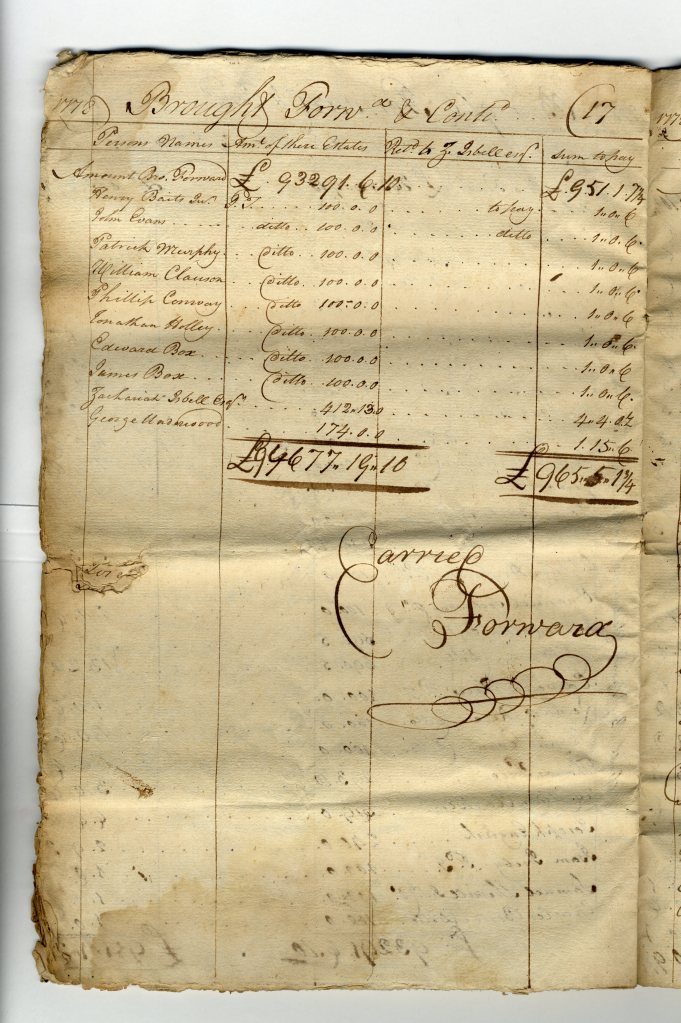 1778 Brought Forwd & Contd (17
Persons Names Amt of there Estates Retd to Z. Isbell esqr. Sum to pay
Amount Bro. Forward £ 93291.6.10 £951.1.7¾
Henry Baits Junr. P. T. 100.0.0 to pay 1"0"6
John Evans ditto 100.0.0 ditto 1"0.6
Patrick Murphy ditto 100.0.0 1"0"6
William Clauson ditto 100.0.0 1"0"6
Phillip Conway ditto 100"0.0 1"0"6
Jonathan Holley ditto 100.0.0 1"0"6
Edward Box ditto 100.0.0 1"0"6
James Box ditto 100.0.0 1"0"6
Zachariah Isbell Esqr. 412"13"0 4"4.02
George Underwood 174.0.0 1.15"6
£94677"19"10 £965"5"1¾
Carried
Forward
177